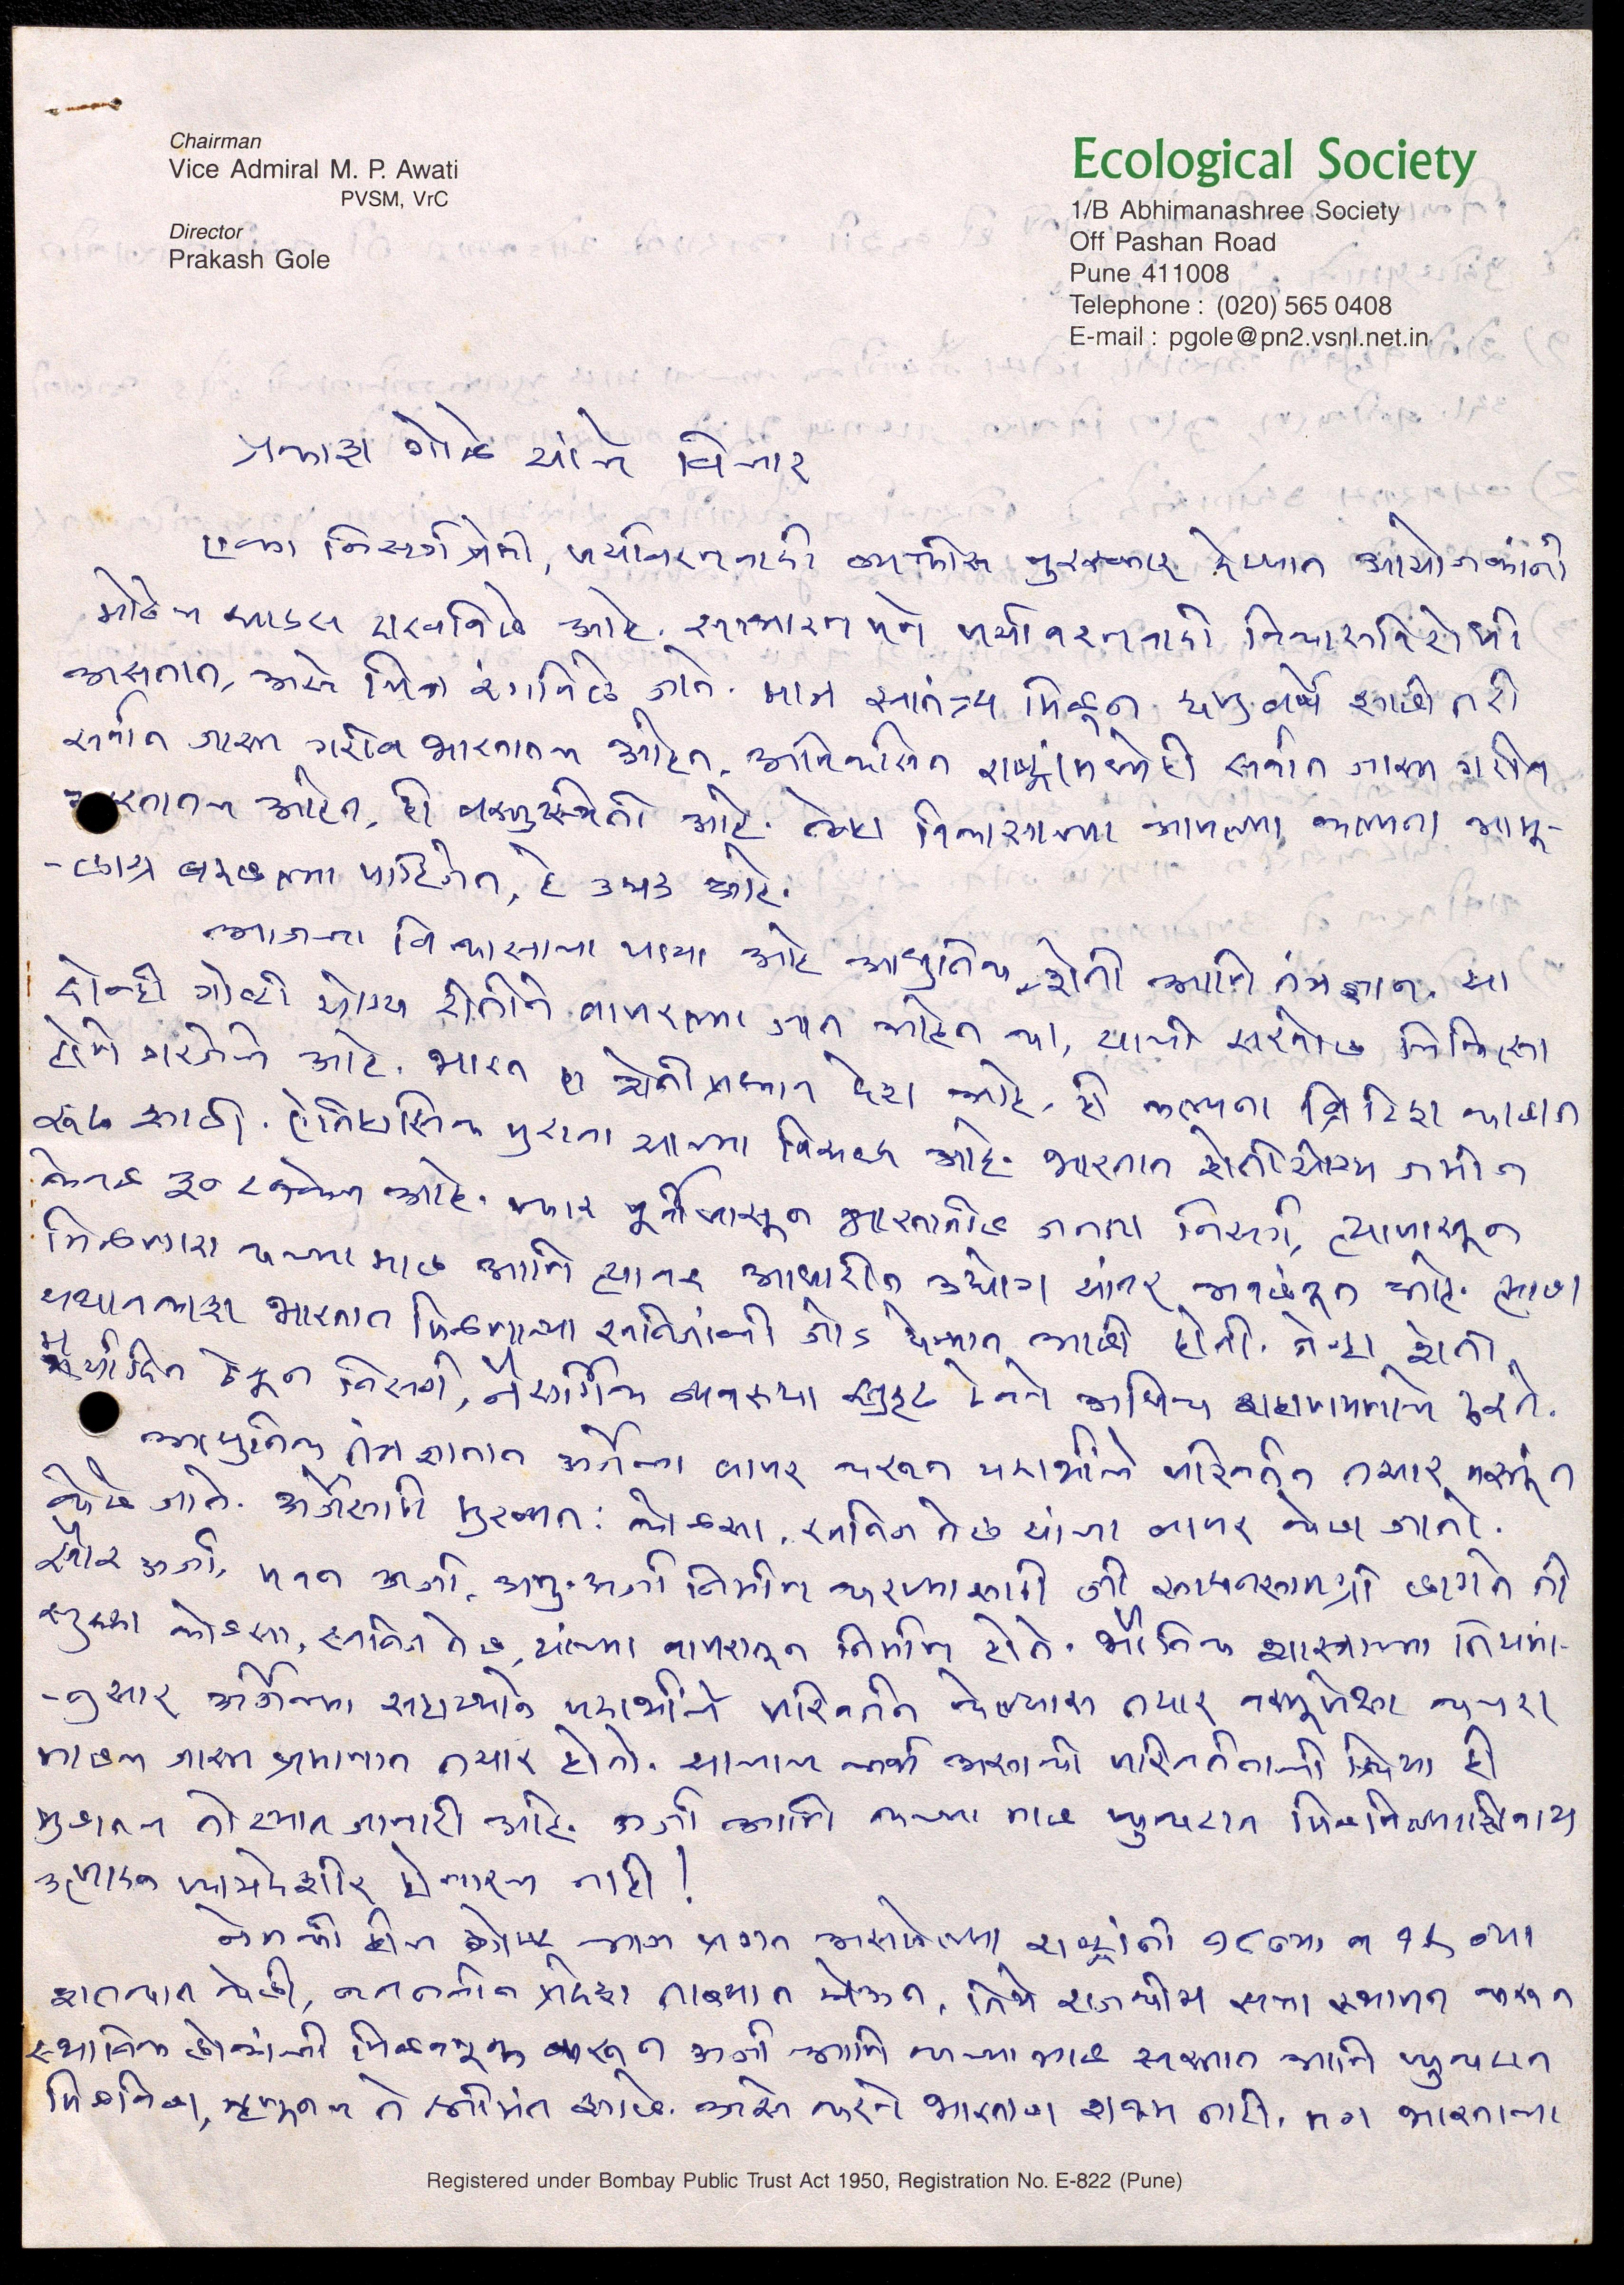 Chairman
Vice Admiral M. P. Awati
PVSM, VrC
Director
Prakash Gole
Ecological Society
1/B Abhimanashree Society
Off Pashan Road
Pune 411008
Telephone : (020) 565 0408
E-mail : pgole@pn2.vsnl.net.in
प्रकाश गोळे यांचे विचार
एका निसर्गप्रेमी, पर्यावरणवादी व्यक्तीस पुरस्कार देण्यात आयोजकांनी
मोठेच धाडस दाखविले आहे. साधारणपणे पर्यावरणवादी विकासविरोधी
असतात, असे चित्र रंगविले जाते. मात्र स्वातंत्र्य मिळून वर्षे झाली तरी
सर्वात जास्त गरीब भारतातच आहेत. अविकसित राष्ट्रांमध्येही सर्वात जास्त गरीब
भारतातच आहेत, ही वस्तुस्थिती आहे. तेव्हा विकासाच्या आपल्या कल्पना आमू-
-लाग्र बदलल्या पाहिजेत, हे उघड आहे.
आजच्या विकासाचा पाया आहे आधुनिक शेती आणि तंत्रज्ञान. या
दोन्ही गोष्टी योग्य रीतीने वापरल्या जात आहेत का, याची सखोल चिकित्सा
होणे गरजेचे आहे. भारत हा शेतीप्रधान देश आहे, ही कल्पना ब्रिटिश काळात
रूढ झाली. ऐतिहासिक पुरावा याच्या विरुद्ध आहे. भारतात शेतीयोग्य जमीन
केवळ ३० टक्केच आहे. फार पूर्वीपासून भारतातील जनता निसर्ग, त्यापासून
मिळणारा कच्चा माल आणि त्यावर आधारीत उद्योग यांवर अवलंबून आहे. त्याला
यथावकाश भारतात मिळणाऱ्या खनिजांची जोड देण्यात आली होती. तेव्हा शेती
मर्यादित ठेवून निसर्ग, नैसर्गिक व्यवस्था सुदृढ ठेवणे अधिक शहाणपणाचे ठरते.
आधुनिक तंत्रज्ञानात ऊर्जेचा वापर करून पदार्थांचे परिवर्तन तयार वस्तूंत
केले जाते. ऊर्जेसाठी मुख्यतः कोळसा, खनिज तेल यांचा वापर केला जातो.
सौर ऊर्जा, पवन ऊर्जा, अणु-ऊर्जा निर्माण करण्यासाठी जी साधनसामग्री लागते ती
सुद्धा कोळसा, खनिज तेल, यांच्या वापरातून निर्माण होते. भौतिक शास्त्राच्या नियमां-
-नुसार ऊर्जेच्या सहाय्याने पदार्थांचे परिवर्तन केल्यास तयार वस्तूपेक्षा कचरा
माल जास्त प्रमाणात तयार होतो. याचाच अर्थ अशाची परिवर्तनाची क्रिया ही
मुळातच तोट्यात जाणारी आहे. ऊर्जा आणि कच्चा माल फुकटात मिळविल्याशिवाय
उत्पादन फायदेशीर होणारच नाही!
नेमकी हीच गोष्ट आज प्रगत असलेल्या राष्ट्रांनी १८व्या व १९ व्या
शतकात केली, प्रदेश ताब्यात घेऊन, तिथे राजकीय सत्ता स्थापन करून
स्थानिक लोकांची पिळवणूक करून ऊर्जा आणि कच्चा माल स्वस्तात आणि फुकटात
मिळविला, म्हणूनच ते श्रीमंत झाले. असे करणे भारताला शक्य नाही. मग भारताच्या
Registered under Bombay Public Trust Act 1950, Registration No. E-822 (Pune)